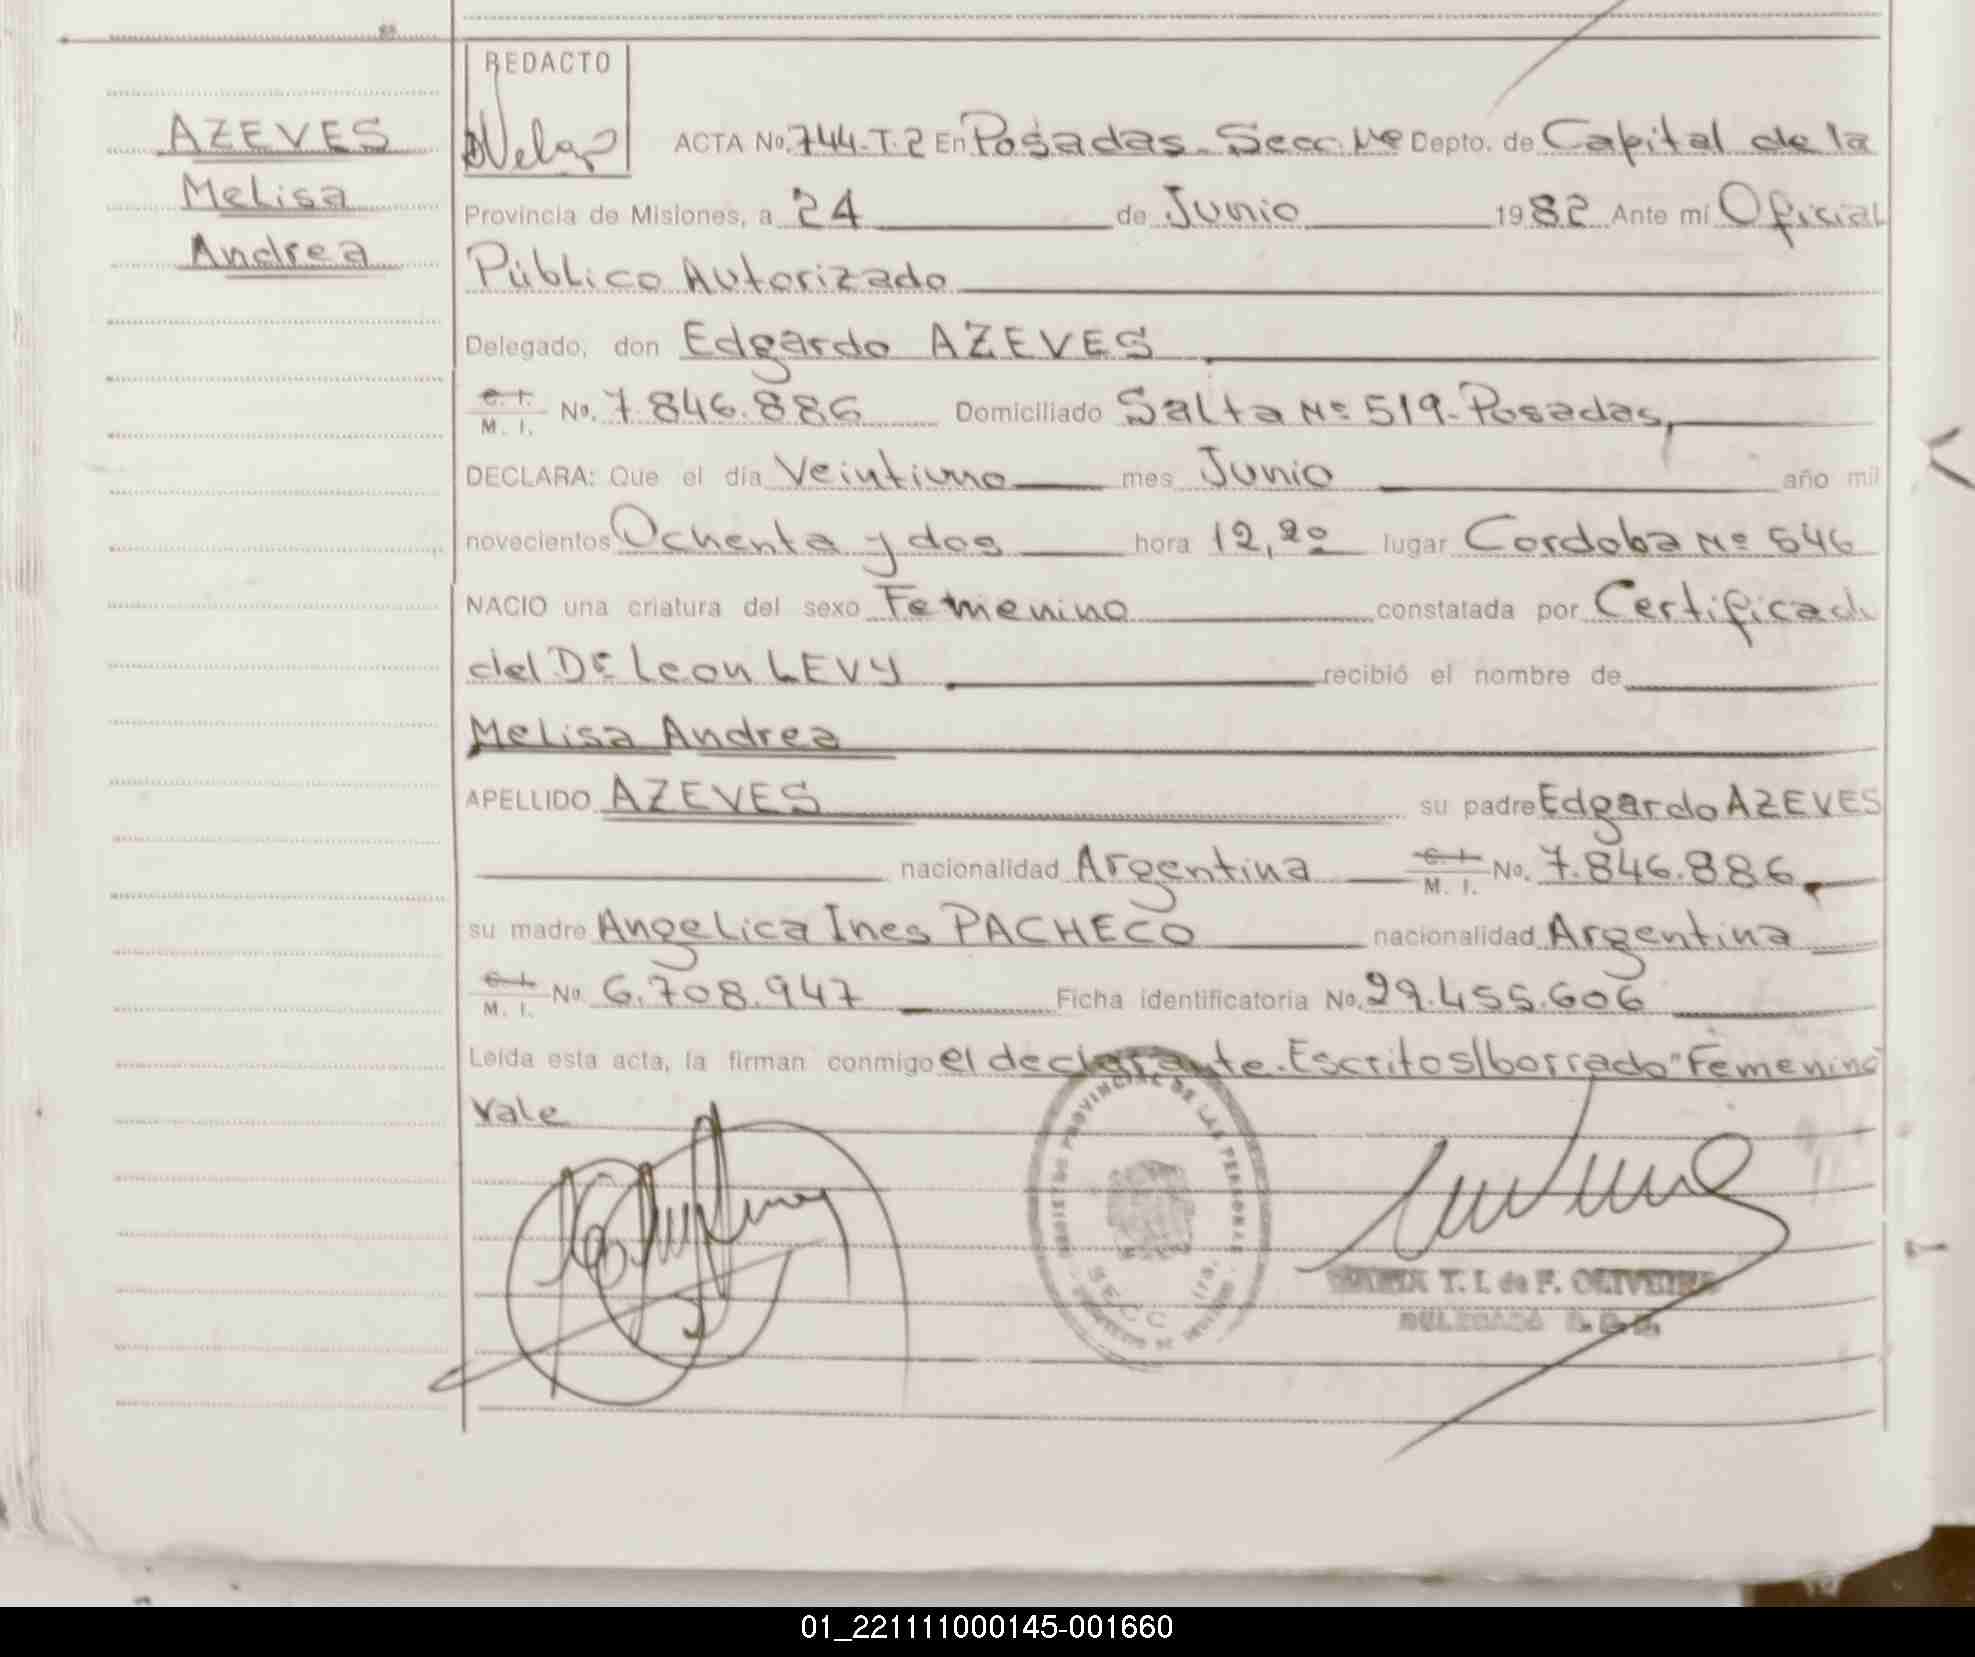 REDACTO
AZEVES
Melisa
Andrea
ACTA No. 744-T.2 En Posadas. Secc. Depto. de Capital de la
Provincia de Misiones, a 24 de Junio 1982 Ante mí Oficial
Público Autorizado
Delegado, don Edgardo AZEVES
C. I. M. I. No. 7.846.886 Domiciliado Salta Nº 519-Posadas,
DECLARA: Que el día Veintiuno mes Junio año mil
novecientos Ochenta y dos hora 12,20 lugar Cordoba Nº 546
NACIO una criatura del sexo Femenino constatada por Certificado
del Dr Leon LEVY recibió el nombre de
Melisa Andrea
APELLIDO AZEVES su padre Edgardo AZEVES
nacionalidad Argentina C. I. M. I. No. 7.846.886
su madre Angelica Ines PACHECO nacionalidad Argentina
C. I. M. I. No. 6.708.947 Ficha identificatoria No. 29.455.606
Leída esta acta, la firman conmigo el declarante. Escrito s/borrado "Femenino"
Vale
REGISTRO PROVINCIAL DE LAS PERSONAS
SECC. 1ra.
T. I. de F. OLIVEIRA
DELEGADA
01_221111000145-001660